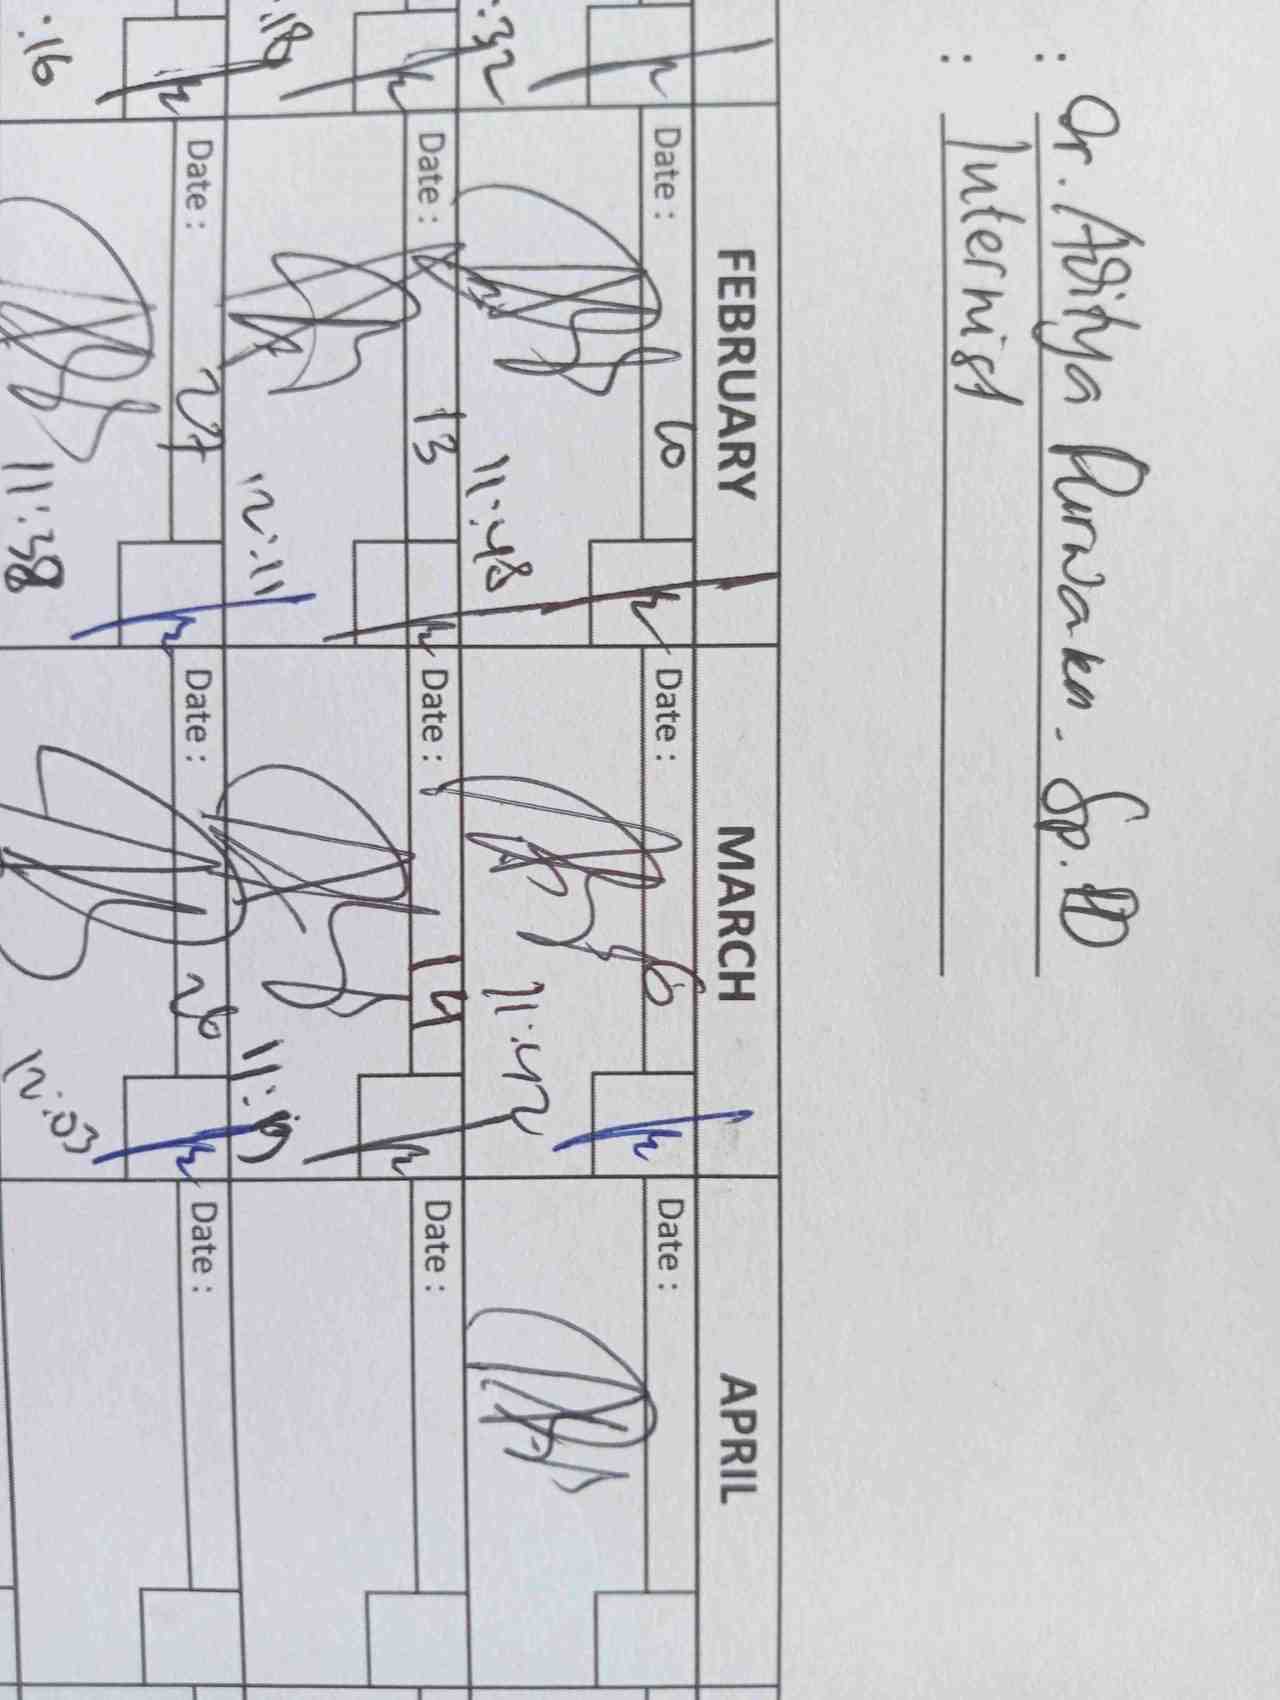 : Dr. Aditya Purwaka. Sp.PD
: Internist
FEBRUARY MARCH APRIL
Date : 10 Date : 6 Date :
:32 11:48 11:42
Date : 13 Date : 14 Date :
:18 12:11
Date : 27 Date : 26 Date :
:16 11:38 12:03